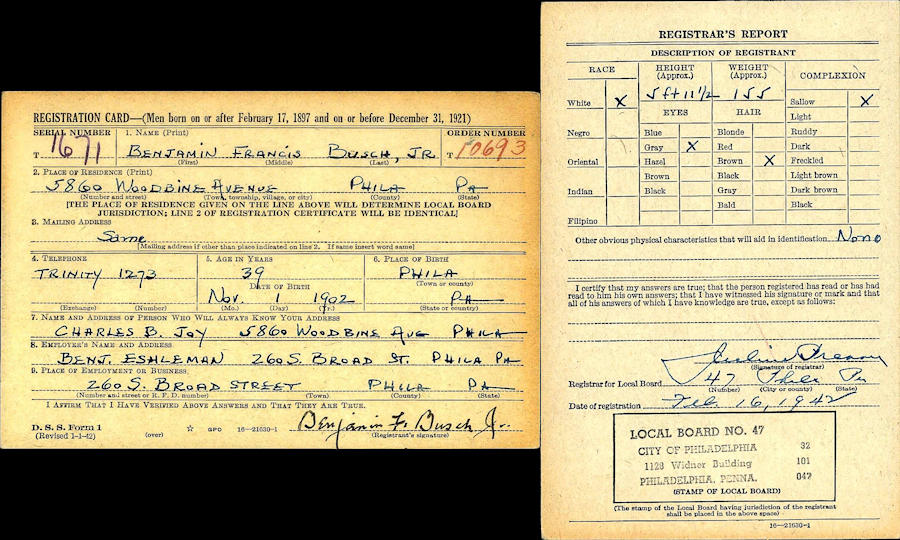 REGISTRATION CARD—(Men born on or after February 17, 1897 and on or before December 31, 1921)
SERIAL NUMBER 1. NAME (Print) ORDER NUMBER
T 1671 BENJAMIN FRANCIS BUSCH, JR T 10693
(First) (Middle) (Last)
2. PLACE OF RESIDENCE (Print)
5860 WOODBINE AVENUE PHILA PA
(Number and street) (Town, township, village, or city) (County) (State)
[THE PLACE OF RESIDENCE GIVEN ON THE LINE ABOVE WILL DETERMINE LOCAL BOARD
JURISDICTION; LINE 2 OF REGISTRATION CERTIFICATE WILL BE IDENTICAL]
3. MAILING ADDRESS
Same
[Mailing address if other than place indicated on line 2. If same insert word same]
4. TELEPHONE 5. AGE IN YEARS 6. PLACE OF BIRTH
TRINITY 1273 39 PHILA
(Town or county)
DATE OF BIRTH
Nov. 1 1902 PA
(Exchange) (Number) (Mo.) (Day) (Yr.) (State or country)
7. NAME AND ADDRESS OF PERSON WHO WILL ALWAYS KNOW YOUR ADDRESS
CHARLES B. JOY 5860 WOODBINE AVE PHILA
8. EMPLOYER'S NAME AND ADDRESS
BENJ. ESHLEMAN 260 S. BROAD ST. PHILA PA
9. PLACE OF EMPLOYMENT OR BUSINESS
260 S. BROAD STREET PHILA PA
(Number and street or R. F. D. number) (Town) (County) (State)
I AFFIRM THAT I HAVE VERIFIED ABOVE ANSWERS AND THAT THEY ARE TRUE.
D. S. S. Form 1
(Revised 1-1-42) (over) ☆ GPO 16—21630-1 Benjamin F. Busch Jr.
(Registrant's signature)
REGISTRAR'S REPORT
DESCRIPTION OF REGISTRANT
RACE HEIGHT (Approx.) WEIGHT (Approx.) COMPLEXION
5 ft 11 1/2 155
White X Sallow X
EYES HAIR Light
Negro Blue Blonde Ruddy
Gray X Red Dark
Oriental Hazel Brown X Freckled
Brown Black Light brown
Indian Black Gray Dark brown
Bald Black
Filipino
Other obvious physical characteristics that will aid in identification None
I certify that my answers are true; that the person registered has read or has had
read to him his own answers; that I have witnessed his signature or mark and that
all of his answers of which I have knowledge are true, except as follows:
(Signature of registrar)
Registrar for Local Board 47 Phila Pa
(Number) (City or county) (State)
Date of registration Feb. 16, 1942
LOCAL BOARD NO. 47
CITY OF PHILADELPHIA 32
1128 Widner Building 101
PHILADELPHIA, PENNA. 047
(STAMP OF LOCAL BOARD)
(The stamp of the Local Board having jurisdiction of the registrant
shall be placed in the above space)
16—21630-1